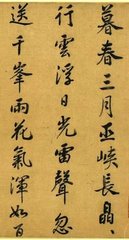 暮春三月巫峡長晶〻
行雲浮日光雷聲忽
送千峯雨花氣渾如百